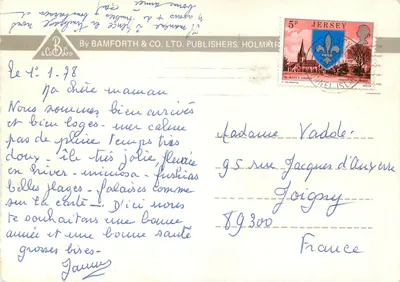 By BAMFORTH & CO. LTD. PUBLISHERS, HOLMFIR
5P JERSEY
le 1-1.78
Ma chère maman
Nous sommes bien arrivés
et bien logés - mer calme
pas de pluie temps très
doux - île très jolie, fleurie
en hiver - mimosa - fushias
belles plages - falaises comme
sur la carte - D'ici nous
te souhaitons une bonne
année et une bonne santé
grosses bises -
Madame Vaddé
95 rue Jacques d'Auxerre
Joigny
89300
France